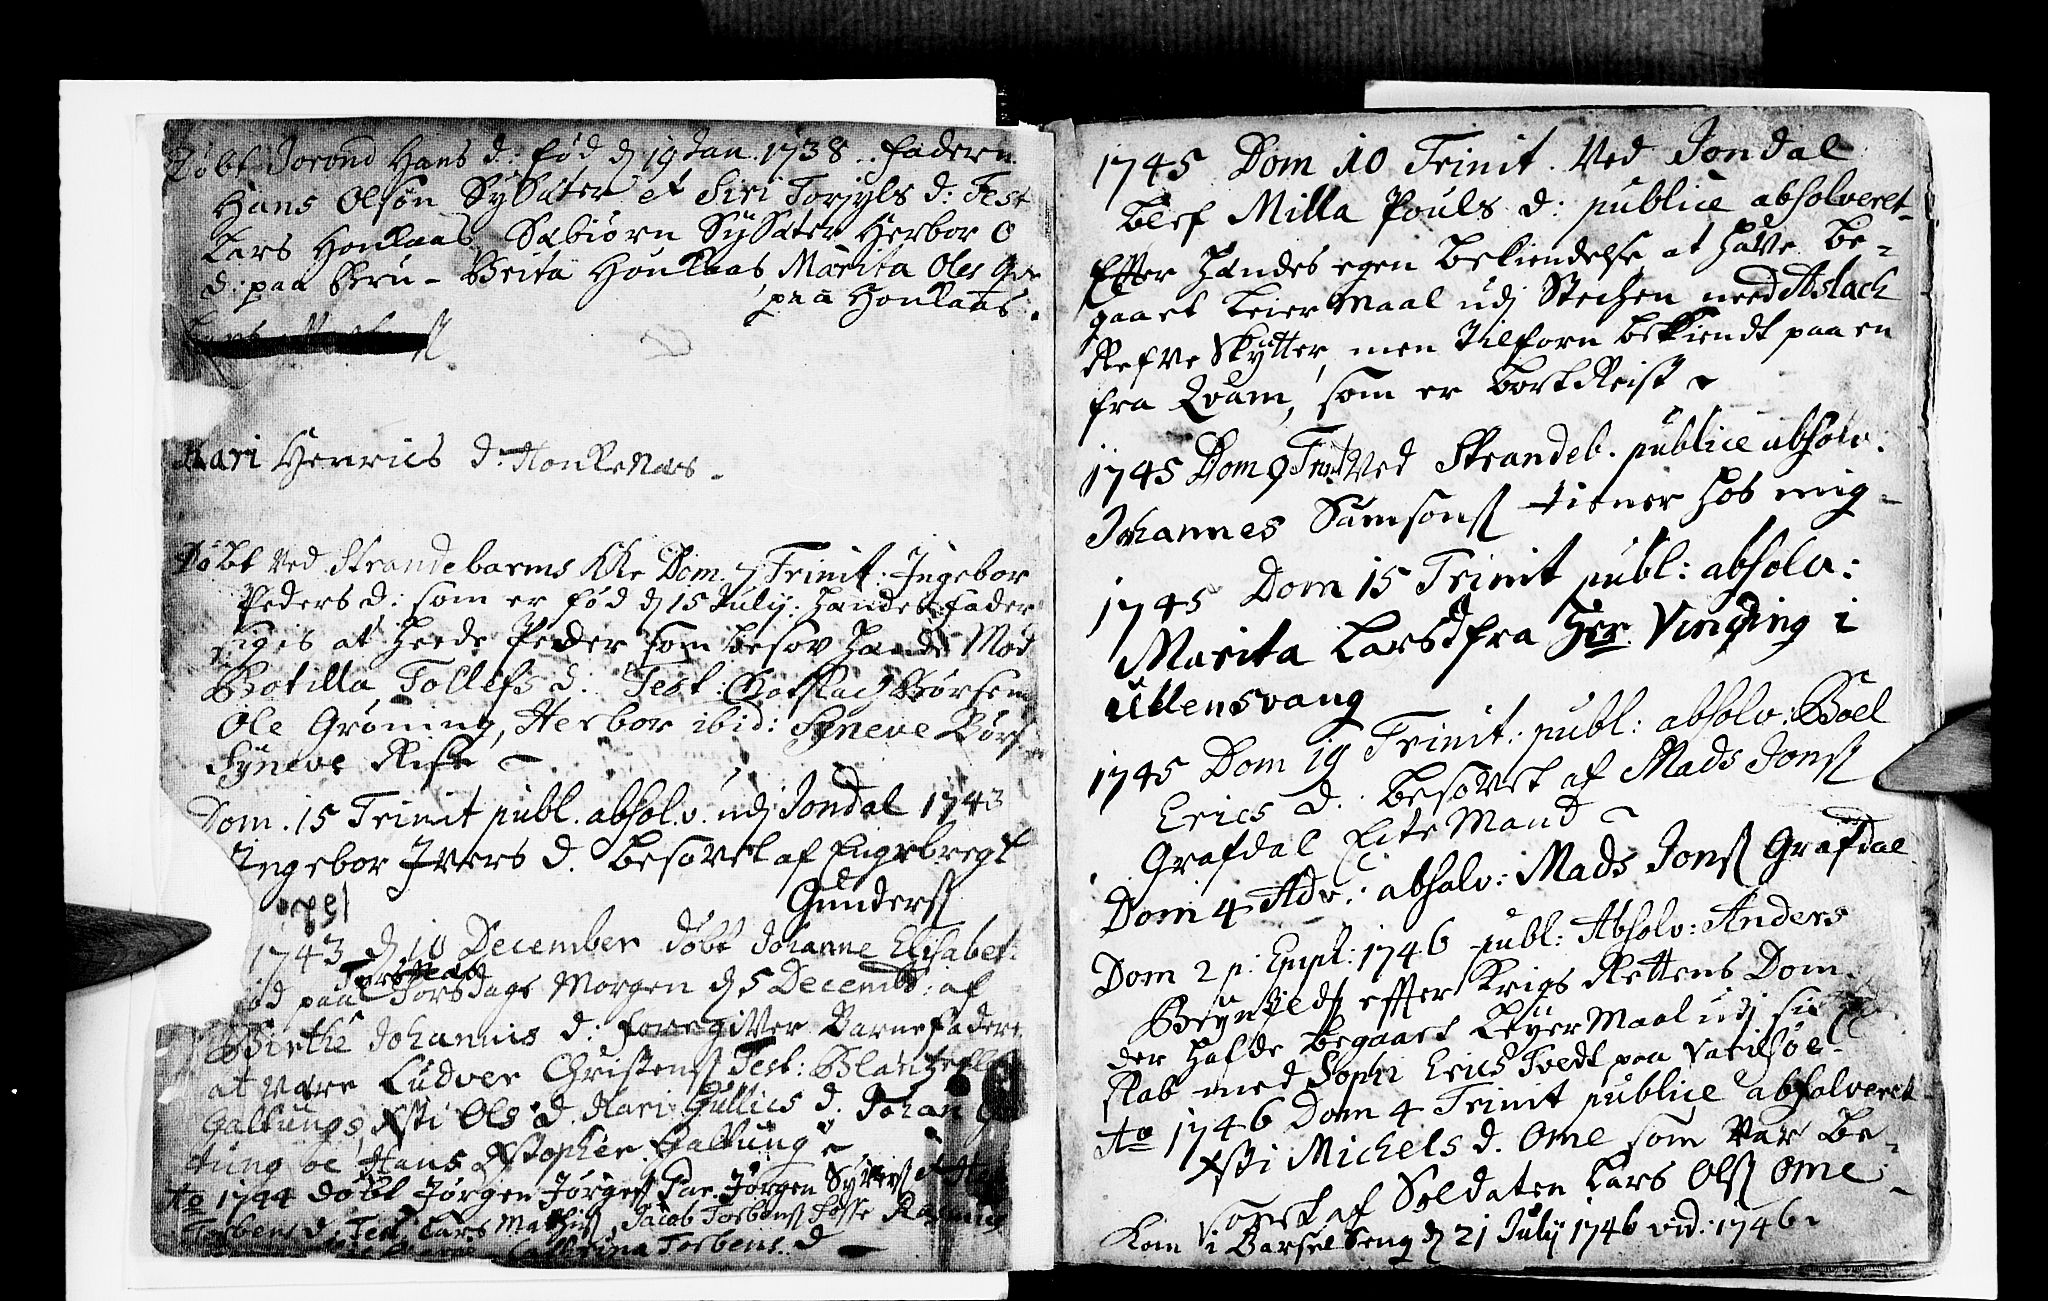 Døbt Jorond Hans d: fød d 19 Jan. 1738.. Faderen
Hans Olsøn Sysæter et Siri Torsyls d: Test
Lars Honkaas, Sæbiørn Sysæter Herbor O
d: paa Bru - Brita Honkaas Marita Oles
paa Honkaas.
Kari Henrics d. Honkenæs.
Døbt ved Strandebarms Kke Dom. 7 Trinit: Ingebor
Peders d: som er fød d 15 July: handes Fader
siges at heede Peder som besov handes Mod
Botilla Tollefs d. Test: Børsem
Ole Grøning, Herbor ibid: Syneve Børs
Syneve Riste
Dom. 15 Trinit publ. absolv. udj Jondal 1743
Ingebor Ivers d. besovet af Engebregt
Gunders
1743 d 10 December døbt Johanne Elisabet:
fød paa Torsdags Morgen d 5 Decemb: af
Birthe Johannis d: foregiver Barnefadere
at være Ludver Christens Test: Blantzeflo
Galtungs, Xsti Ols d. Kari Gullics d. Johan G
tung oc Hans Xstopher Galtung
Ao 1744 døbt Jørgen Jørgens Par. Jørgen
Torbens d. Test, Lars Mathis, Jacob Torbens Fosse Rasmus
Cathrina Torbens d
1745 Dom 10 Trinit. Ved Jondal
blef Milla Pouls d: publice absolveret
Efter hendes egen bekiendelse at have be-
gaaet Leiermaal udj Stechen med Aslach
Refve Skytter, men tilforn bekiendt paa en
fra Qvam, som er bortreist
1745 Dom 9 Trinit Ved Strandeb. publice absolv:
Johannes Samsons tiener hos mig
1745 Dom 15 Trinit publ: absolv:
Marita Larsd fra Her Vinding i
Ullensvang
1745 Dom 19 Trinit: publ: absolv: Boel
Erics d. besovet af Mads Jons
Grafdal Ecte Mand
Dom 4 Adv: absolv: Mads Jons Grafdal
Dom 2 p: Epiph: 1746 publ: Absolv: Anders
Brynjelds efter Krigs Rettens Dom
der hafde begaaet Leyermaal udj
skab med Sophi Erics Tvedt paa
Ao 1746 Dom 4 Trinit publice absolveret
Xsti Michels d. Ome som var be-
sovet af Soldaten Lars Ols Ome
Kom i Barsel Seng d 21 July 1746 vid: 1746